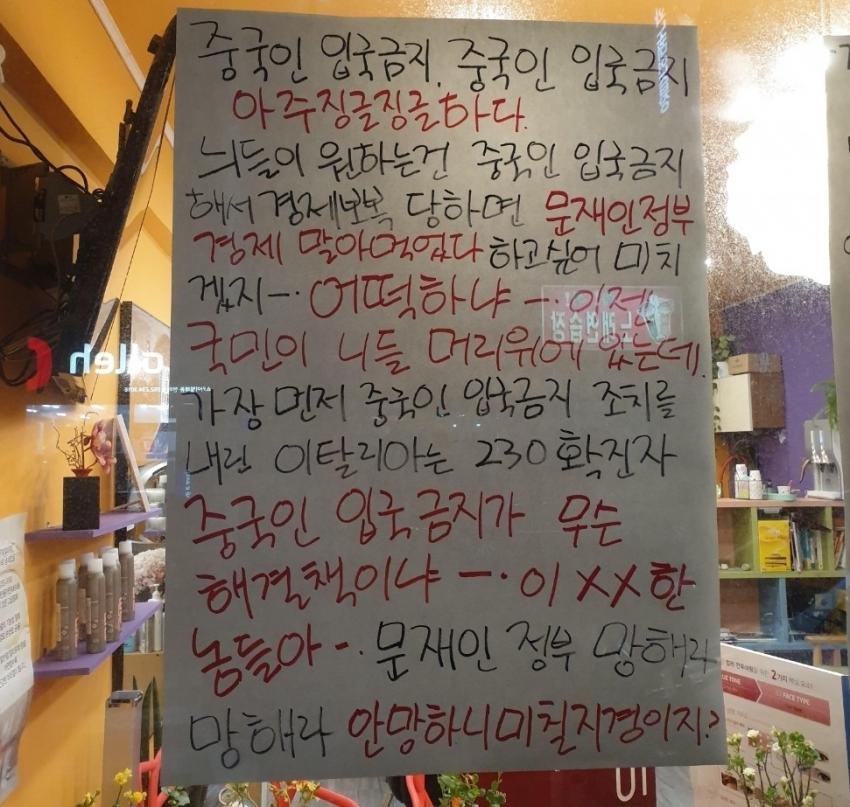 중국인 입국금지. 중국인 입국금지
아주징글징글하다.
늬들이 원하는건 중국인 입국금지
해서 경제보복 당하면 문재인정부
경제 말아먹었다 하고싶어 미치
겠지ㅡ. 어떡하냐 ㅡ. 이젠
국민이 니들 머리위에 있는데.
가장 먼저 중국인 입국금지 조치를
내린 이탈리아는 230 확진자
중국인 입국금지가 무슨
해결책이냐 ㅡ. 이 XX한
놈들아 ㅡ. 문재인 정부 망해라
망해라 안망하니미칠지경이지?
olleh
노래연습장
2가지
FACE TYPE